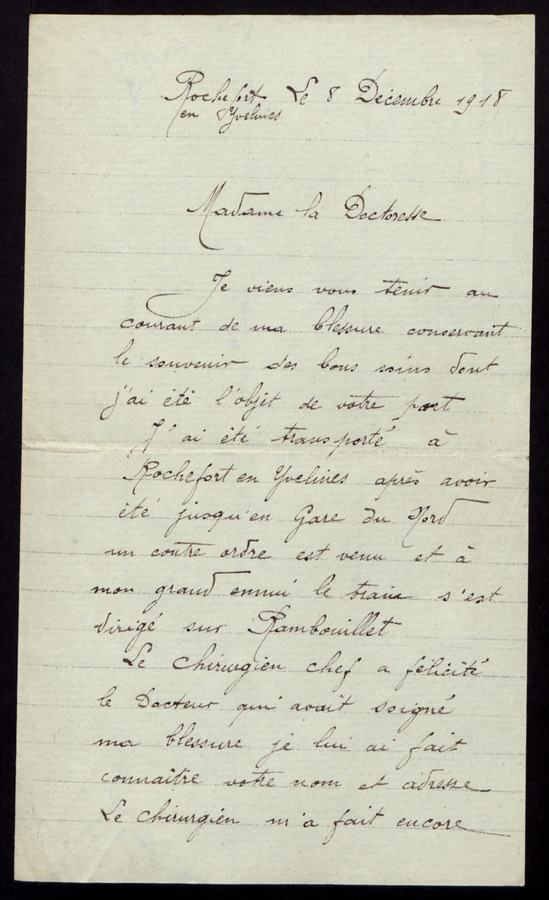 Rochefort Le 8 Décembre 1918
en Yvelines
Madame la Doctoresse
Je viens vous tenir au
courant de ma blessure conservant
le souvenir des bons soins dont
j'ai été l'objet de votre part
J'ai été transporté à
Rochefort en Yvelines après avoir
été jusqu'en Gare du Nord
un contre ordre est venu et à
mon grand ennui le train s'est
dirigé sur Rambouillet
Le chirurgien chef a félicité
le Docteur qui avait soigné
ma blessure je lui ai fait
connaître votre nom et adresse
Le chirurgien m'a fait encore